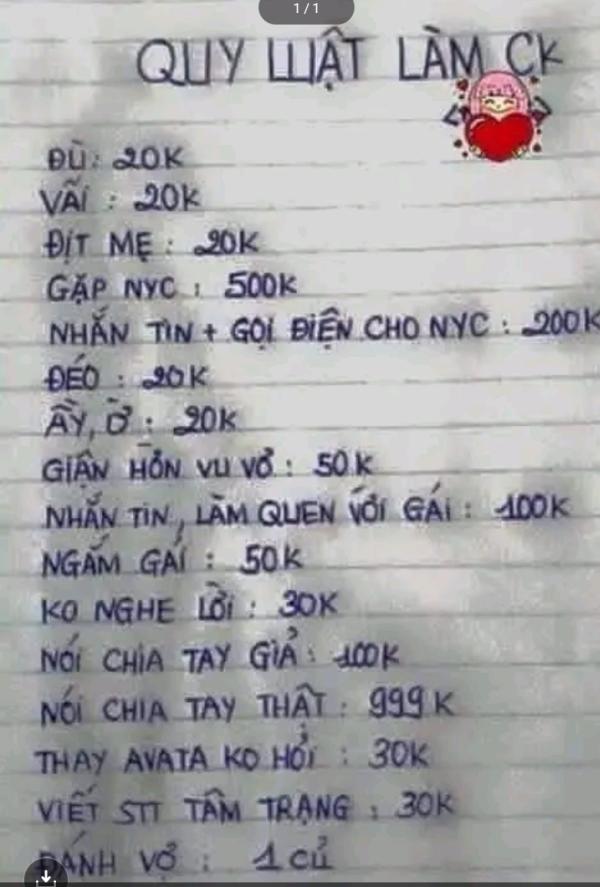 1/1
QUY LUẬT LÀM CK
ĐÙ: 20K
VÃI : 20K
ĐỊT MẸ : 20K
GẶP NYC : 500K
NHẮN TIN + GỌI ĐIỆN CHO NYC : 200K
ĐÉO : 20K
ẦY, Ờ : 20K
GIẬN HỜN VU VƠ : 50K
NHẮN TIN, LÀM QUEN VỚI GÁI : 100K
NGẮM GÁI : 50K
KO NGHE LỜI : 30K
NÓI CHIA TAY GIẢ : 100K
NÓI CHIA TAY THẬT : 999K
THAY AVATA KO HỎI : 30K
VIẾT STT TÂM TRẠNG : 30K
ĐÁNH VỢ : 1 CỦ